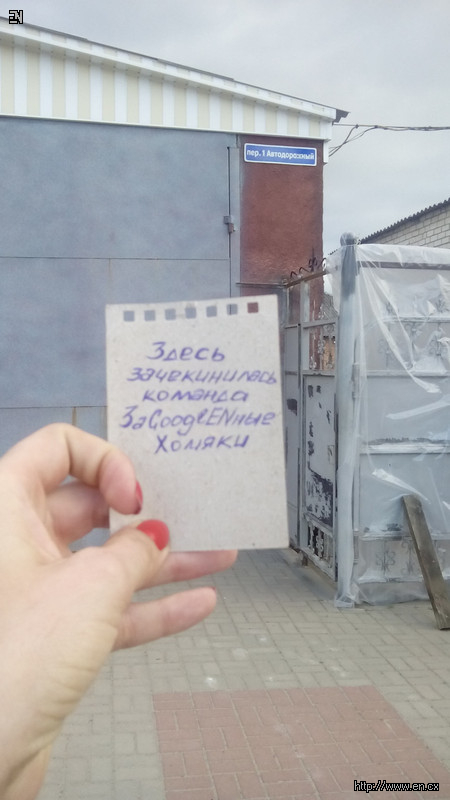 EN
пер. 1 Автодорожный
Здесь
зачекинилась
команда
ZаGooglENные
Хомяки
http://www.en.cx